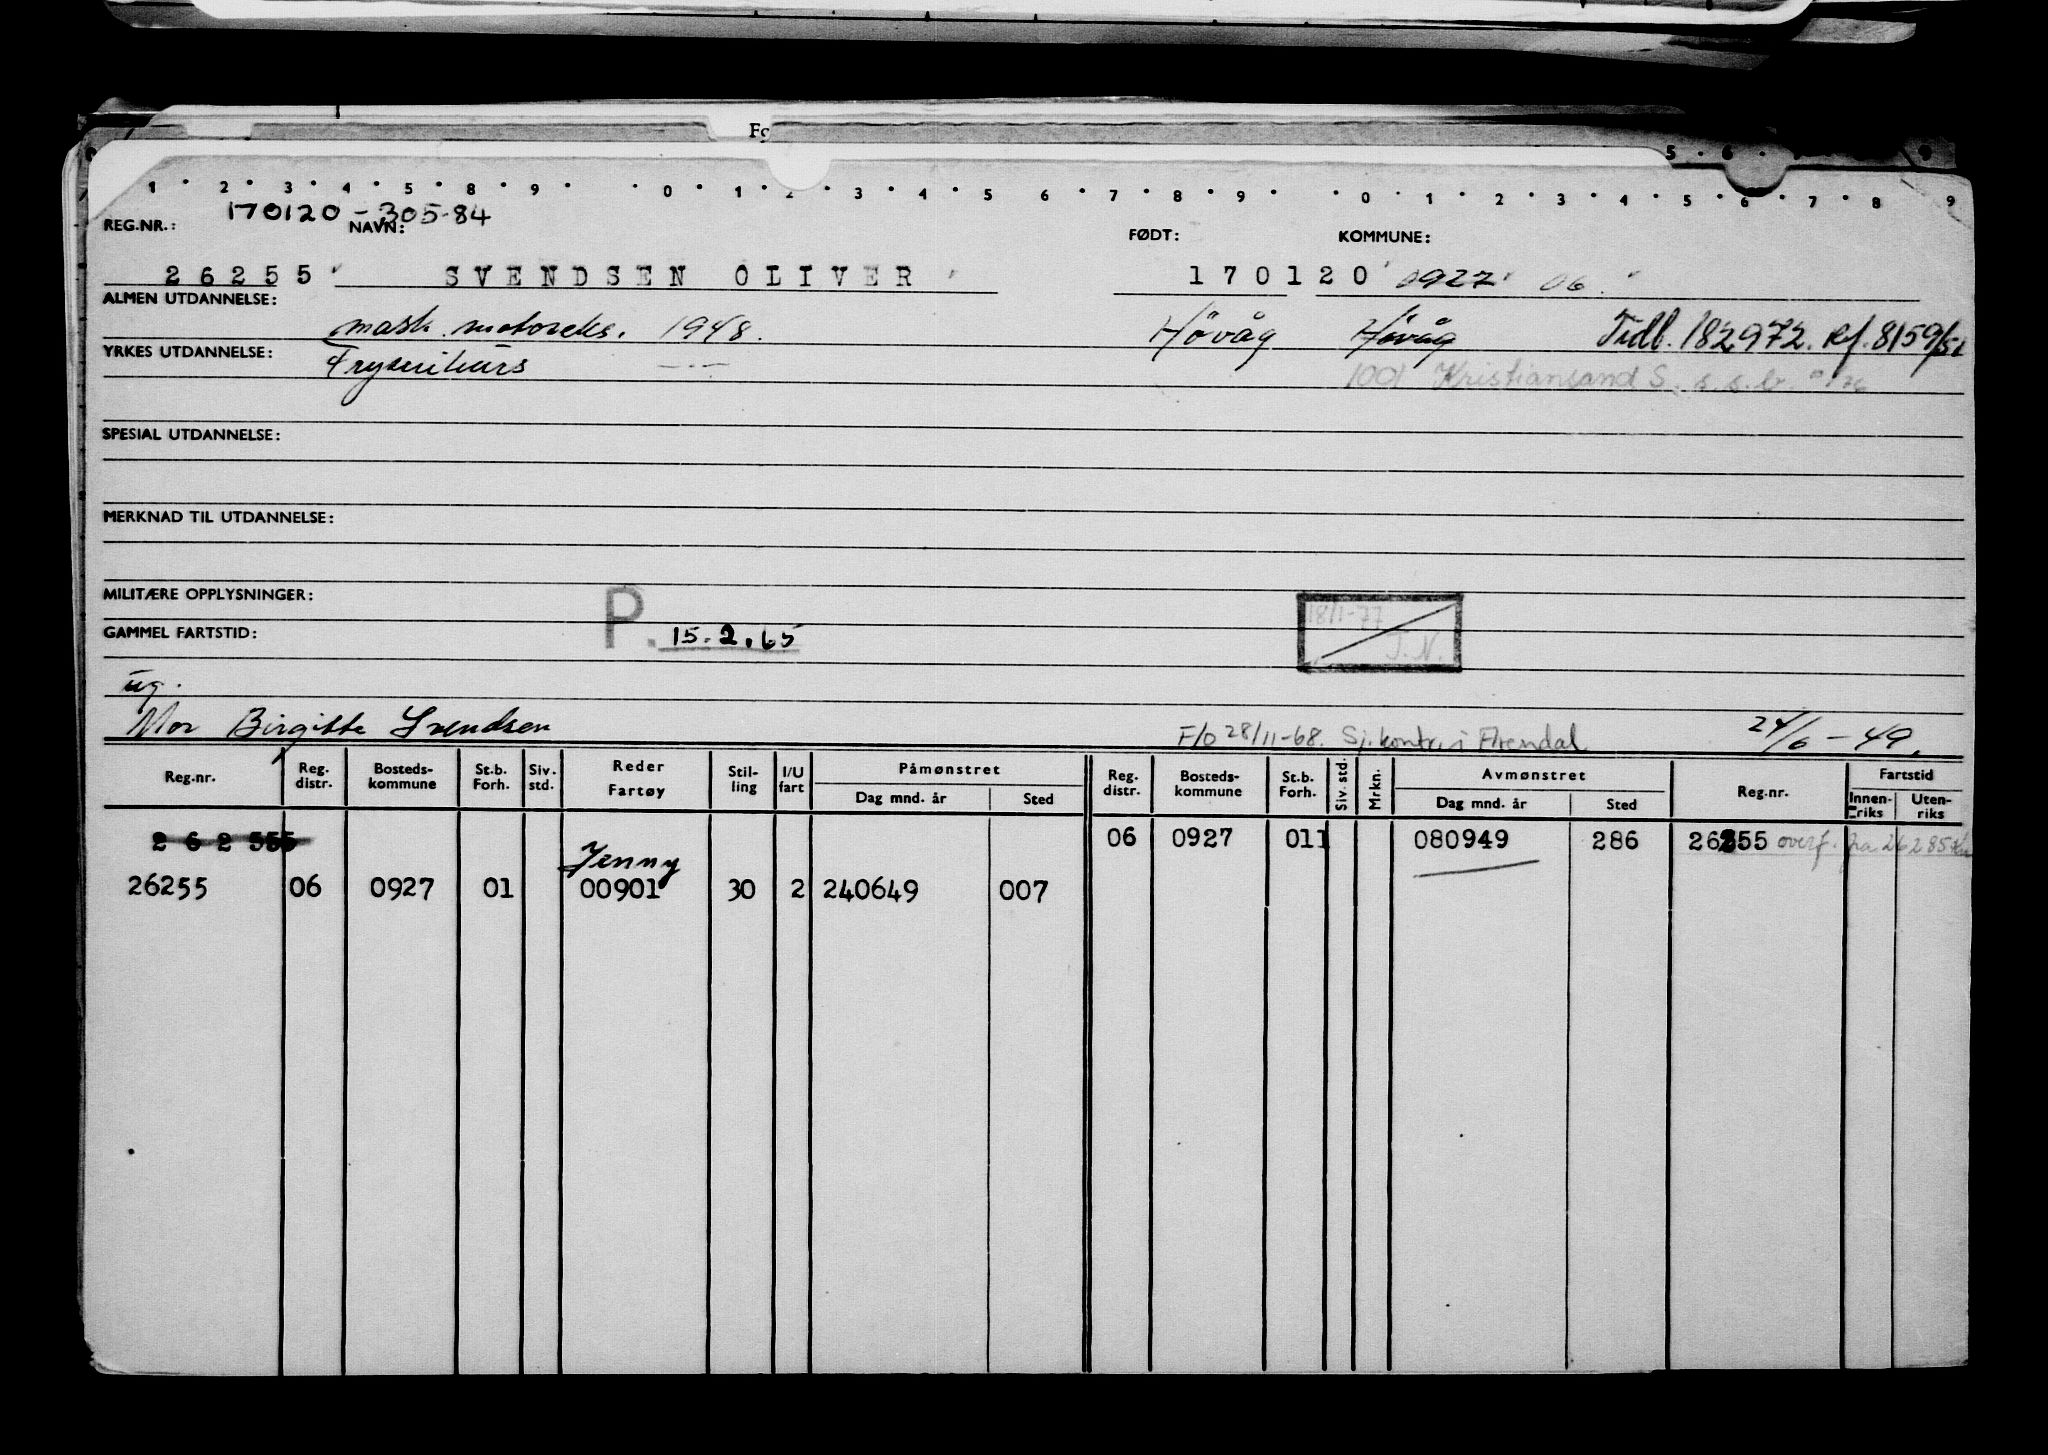 Fo
5 6 9
1 2 3 4 5 8 9 0 1 2 3 4 5 6 7 8 9 0 1 2 3 4 5 6 7 8 9
170120-305-84
REG.NR.: NAVN: FØDT: KOMMUNE:
26255 SVENDSEN OLIVER 170120 0927 06
ALMEN UTDANNELSE:
mask. motoreks. 1948. Høvåg Høvåg Tidl. 182972. Ref. 8159/51
YRKES UTDANNELSE:
Fryserikurs —·— 1001 Kristiansand S. s.s.b.
SPESIAL UTDANNELSE:
MERKNAD TIL UTDANNELSE:
MILITÆRE OPPLYSNINGER:
P. 15.2.65
18/1-77
T.N.
GAMMEL FARTSTID:
ug.
Mor Birgitte Svendsen F/o 28/11-68. Sj.kontr. i Arendal 24/6-49.
Reg.nr. Reg. distr. Bosteds-kommune St.b. Forh. Siv. std. Reder Fartøy Stil-ling I/U fart Påmønstret Dag mnd. år Sted Reg. distr. Bosteds-kommune St.b. Forh. Siv. std. Mrkn. Avmønstret Dag mnd. år Sted Reg.nr. Fartstid Innen-riks Uten-riks
06 0927 011 080949 286 26255 overf. fra 26285
Jenny
26255 06 0927 01 00901 30 2 240649 007